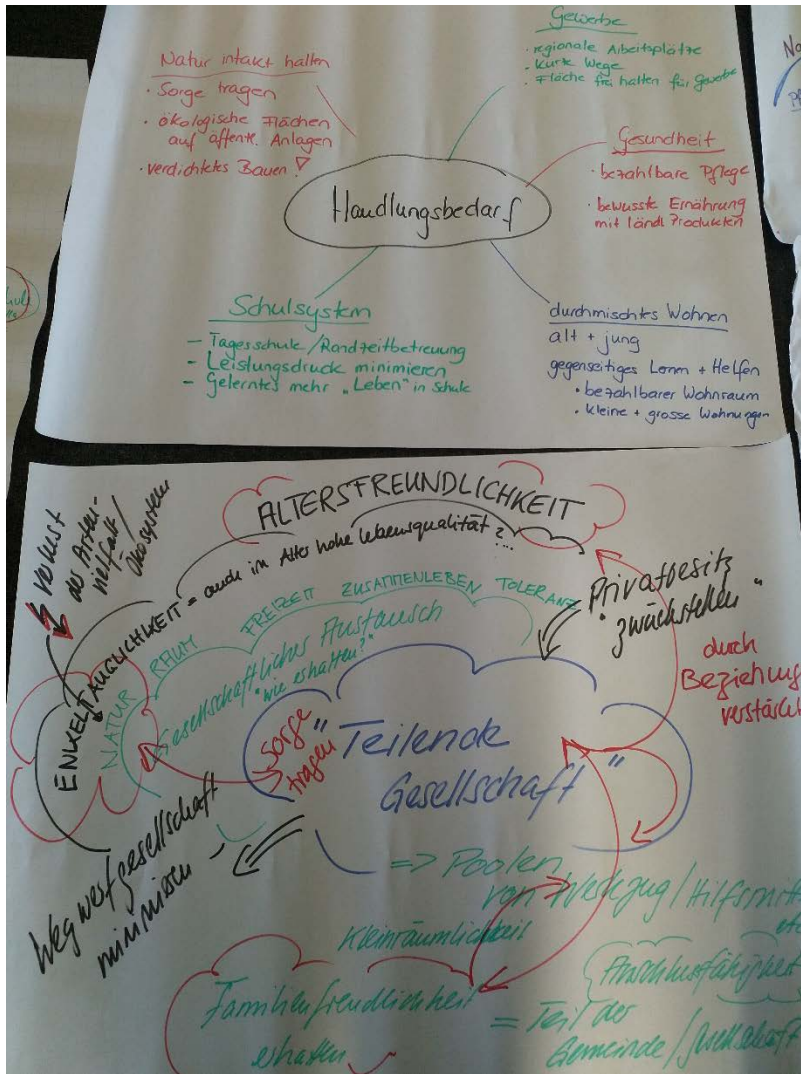 Natur intakt halten
• Sorge tragen
• ökologische Flächen
auf öffentl. Anlagen
• verdichtetes Bauen!
Gewerbe
• regionale Arbeitsplätze
• kurze Wege
• Fläche frei halten für Gewerbe
Gesundheit
• bezahlbare Pflege
• bewusste Ernährung
mit ländl. Produkten
Handlungsbedarf
Schulsystem
– Tagesschule / Randzeitbetreuung
– Leistungsdruck minimieren
– Gelerntes mehr „Leben" in Schule
durchmischtes Wohnen
alt + jung
gegenseitiges Lernen + Helfen
• bezahlbarer Wohnraum
• kleine + grosse Wohnungen
ALTERSFREUNDLICHKEIT
= auch im Alter hohe Lebensqualität?...
Verlust
der Arten-
vielfalt /
Ökosystem
ENKELTAUGLICHKEIT
NATUR RAUM FREIZEIT ZUSAMMENLEBEN TOLERANZ
Gesellschaftlicher Austausch
"wie erhalten?"
Privatbesitz
"zurückstellen"
durch
Beziehung
verstärkt
Sorge
tragen
"Teilende
Gesellschaft"
Wegwerfgesellschaft
minimieren
=> Poolen
von Werkzeug / Hilfsmitt
etc
Kleinräumlichkeit
Familienfreundlichkeit
erhalten
Anschlussfähigkeit
= Teil der
Gemeinde / Gesellschaft